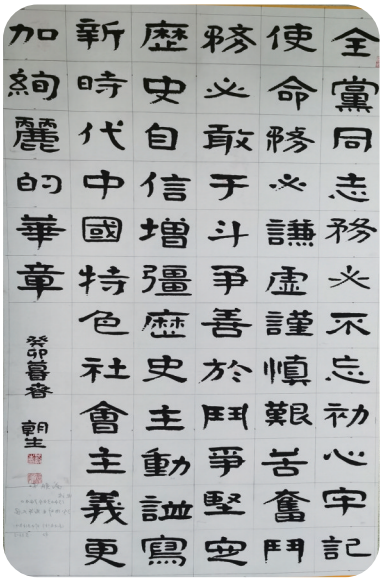 全黨同志務必不忘初心牢記
使命務必謙虛謹慎艱苦奮鬥
務必敢于斗爭善於鬥爭堅定
歷史自信增彊歷史主動譜寫
新時代中國特色社會主義更
加絢麗的華章
癸卯暮春 朝生